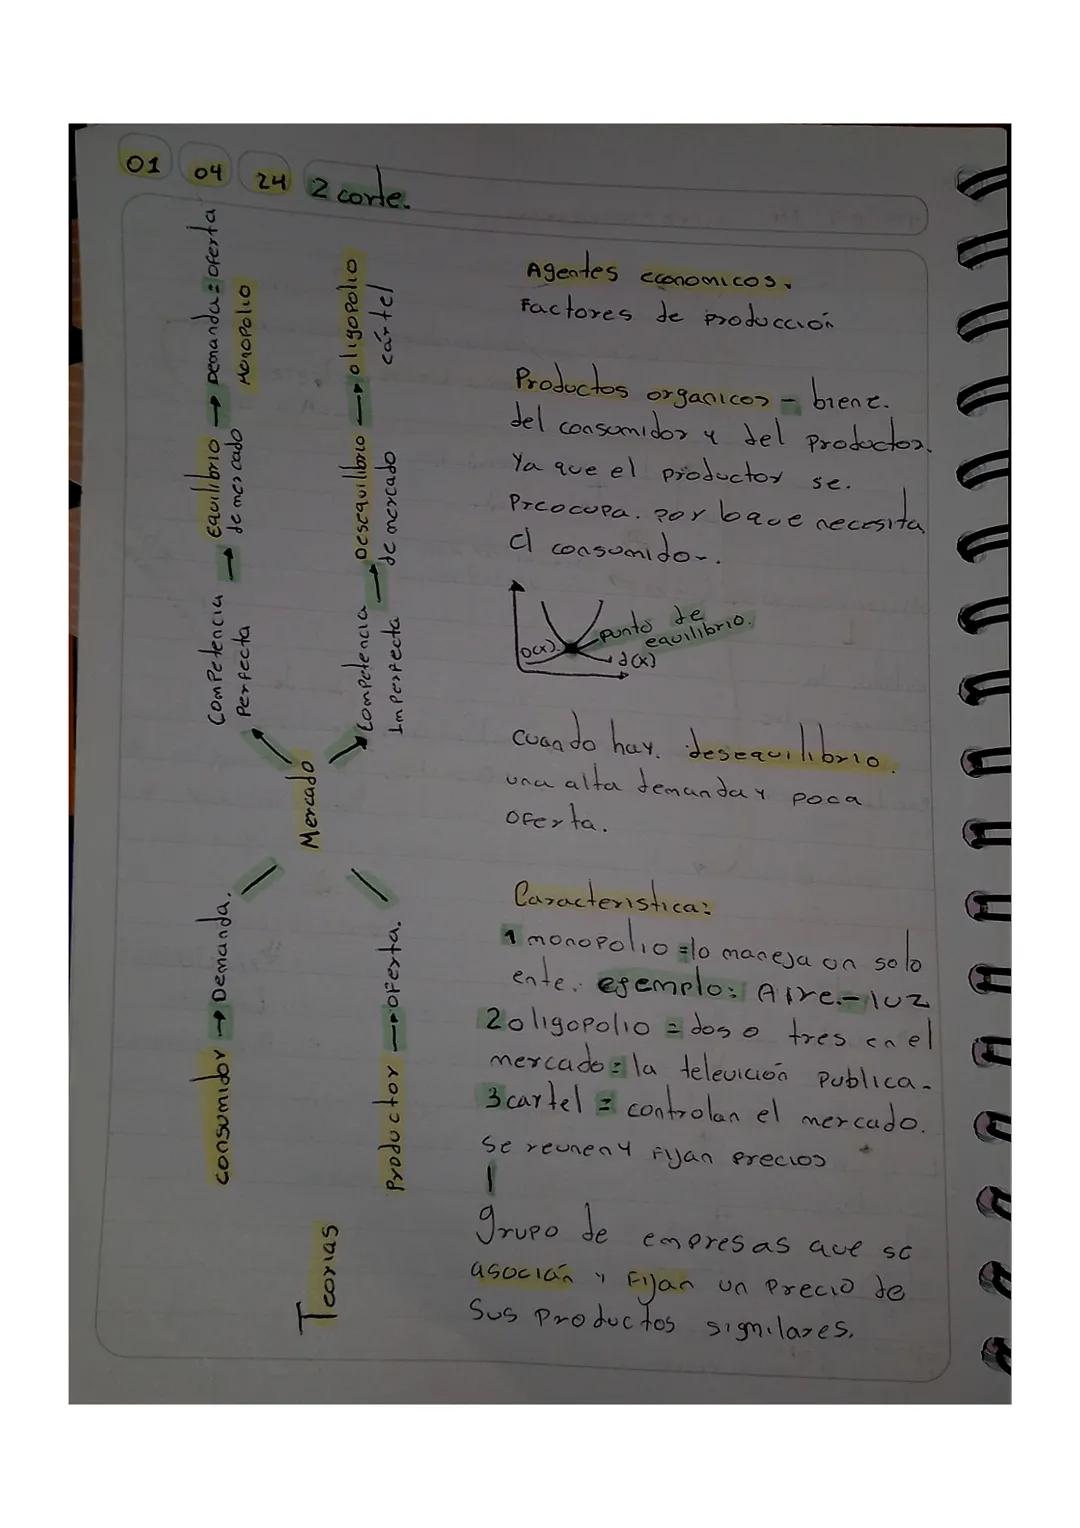 01 04 24 2 corte.
Teorias
consumidor → Demanda.
Productor → oferta.
Mercado
Competencia → Equilibrio → Demanda = oferta
Perfecta de mercado Monopolio
Competencia → Desequilibrio → oligopolio
Imperfecta de mercado cártel
Agentes economicos.
Factores de producción
Productos organicos - biene.
del consumidor y del productor.
Ya que el productor se.
Preocupa. por lo que necesita
el consumidor.
o(x) punto de
equilibrio.
d(x)
cuando hay. desequilibrio.
una alta demanda y poca
oferta.
Caracteristica:
1 monopolio = lo maneja un solo
ente. ejemplo: Aire. - luz
2 oligopolio = dos o tres en el
mercado = la televición publica.
3 cartel = controlan el mercado.
se reunen y fijan precios
grupo de empresas que se
asocián y Fijan un Precio de
Sus Productos significares.